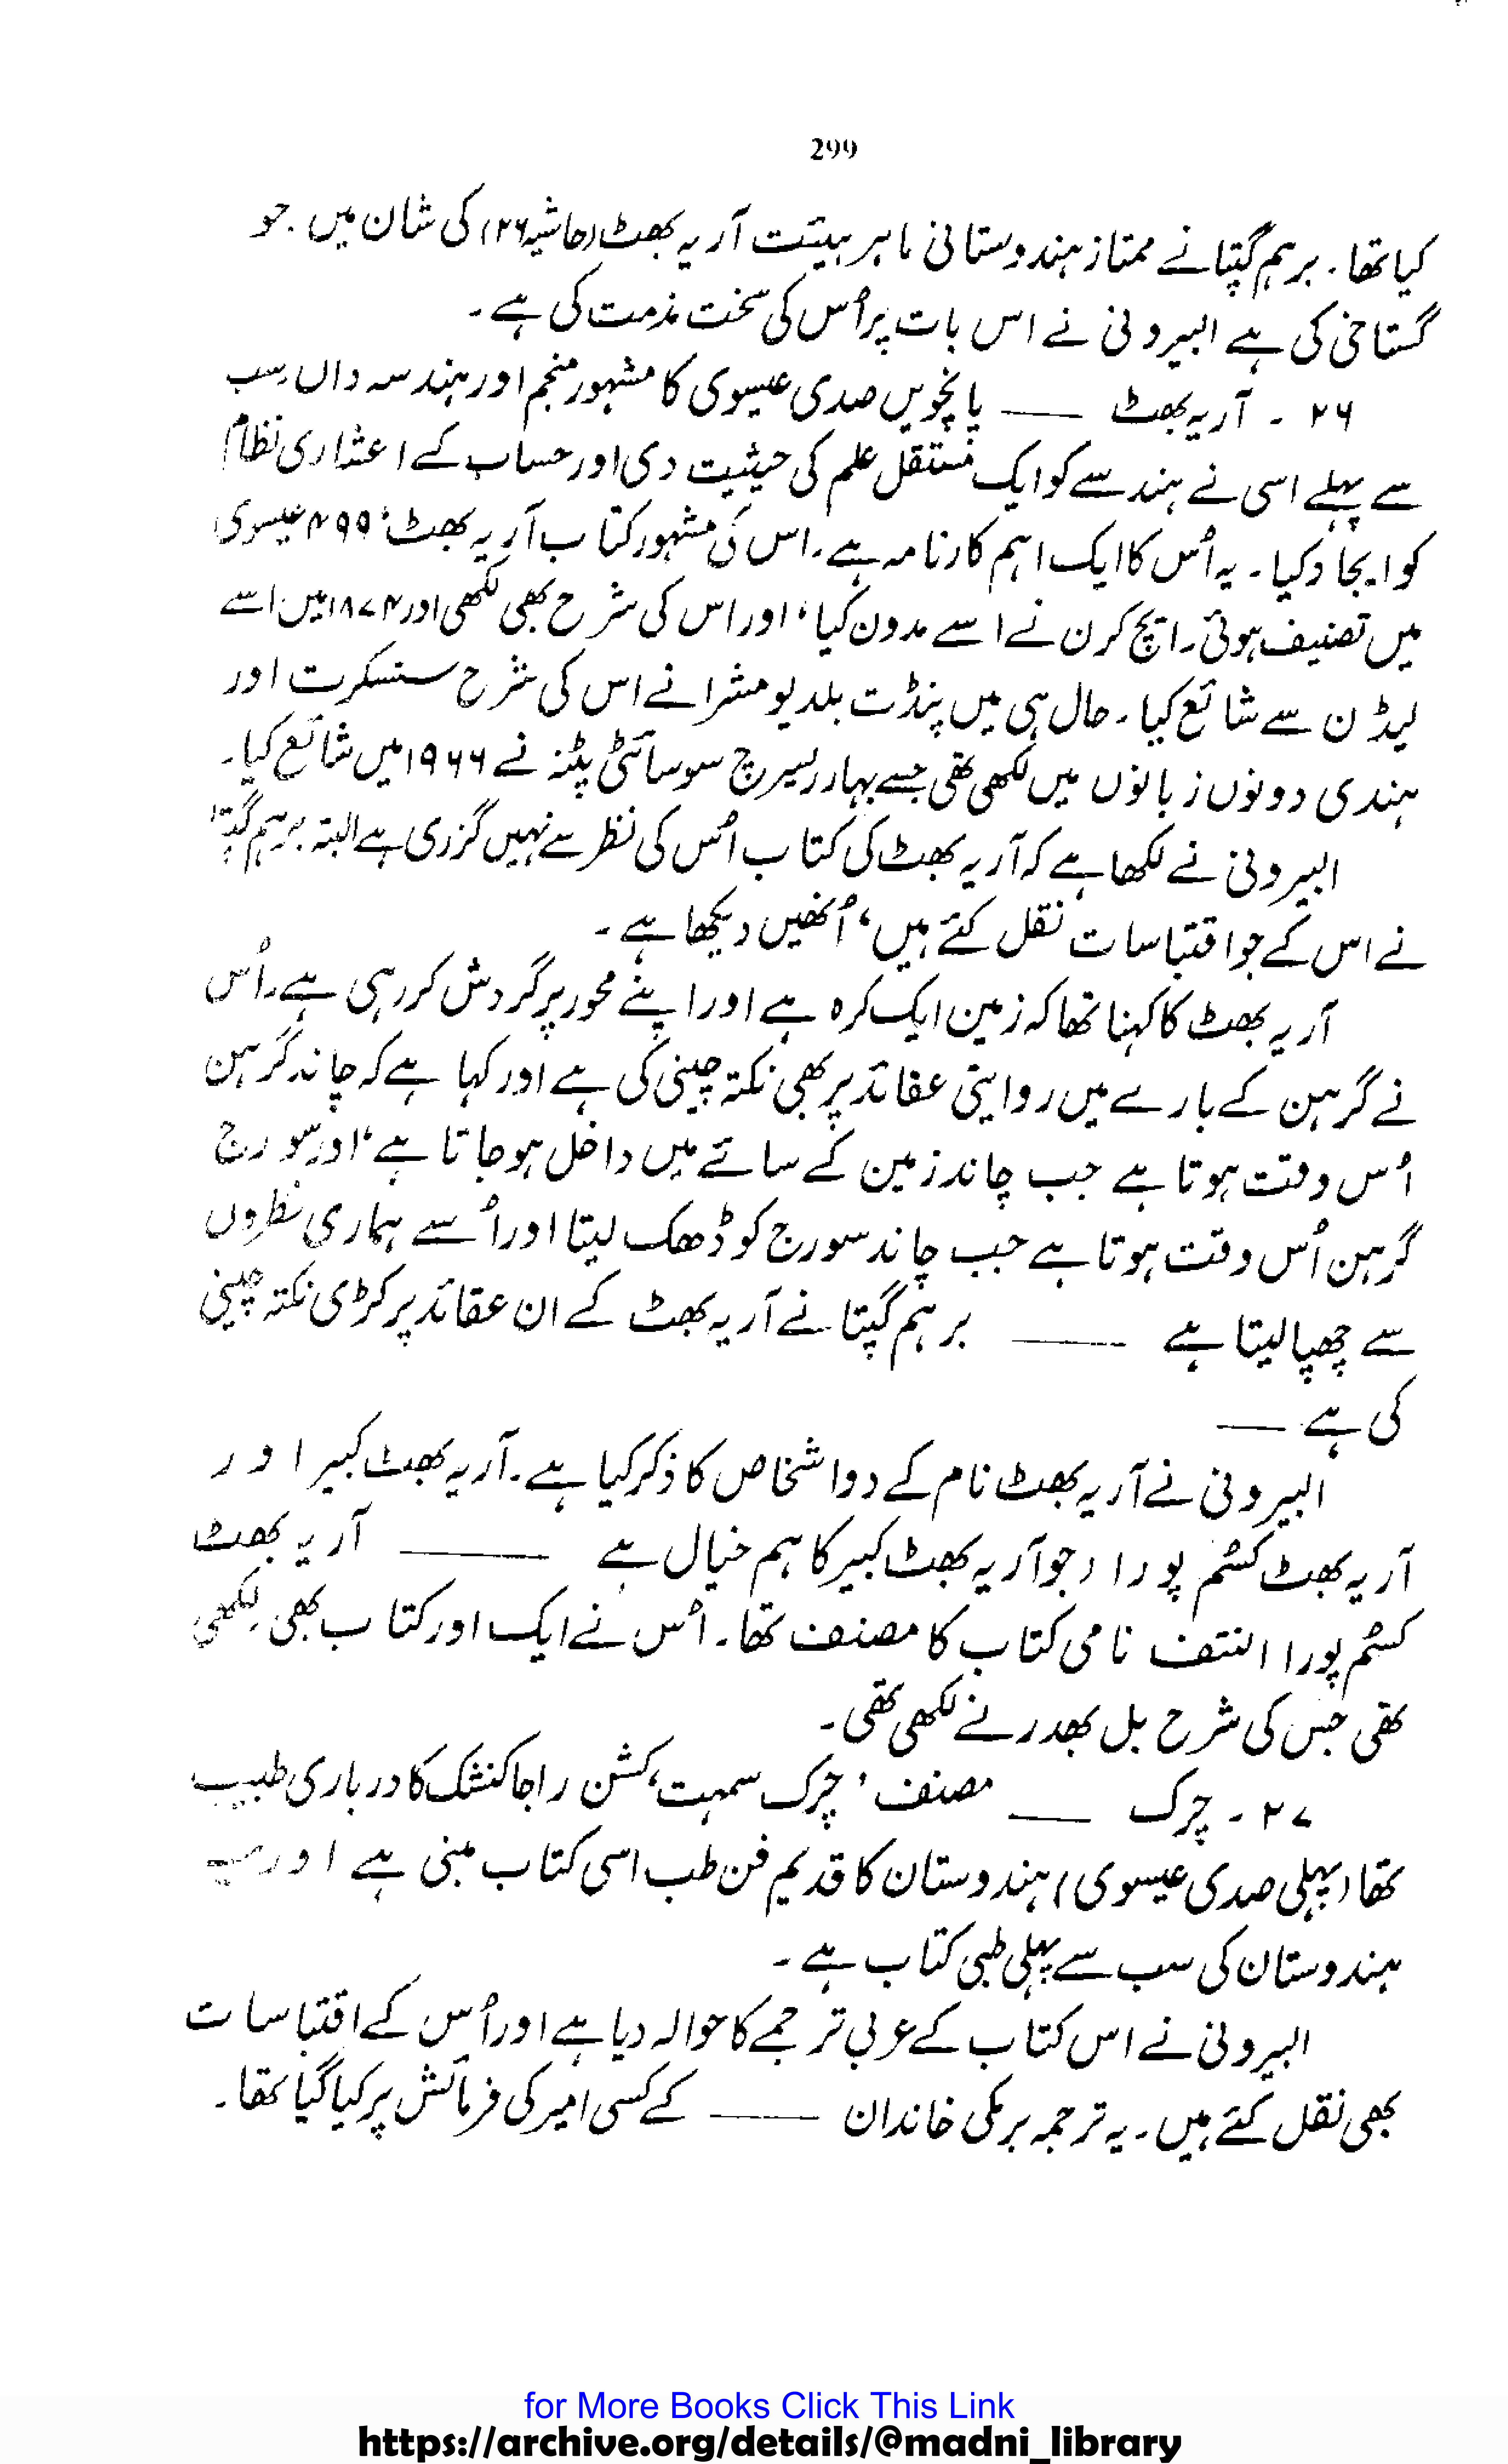 299
کیا تھا۔ برہم گپتا نے ممتاز ہندوستانی ماہر ہیئت آریہ بھٹ (حاشیہ ۲۶) کی شان میں۔ جو
گستاخی کی ہے البیرونی نے اس بات پر اُس کی سخت مذمت کی ہے۔
۲۶ ۔ آریہ بھٹ —— پانچویں صدی عیسوی کا مشہور منجم اور ہندسہ داں سب
سے پہلے اسی نے ہندسے کو ایک مستقل علم کی حیثیت دی اور حساب کے اعشاری نظام
کو ایجاد کیا۔ یہ اُس کا ایک اہم کارنامہ ہے۔ اس کی مشہور کتاب آریہ بھٹ، ۴۹۹ عیسوی
میں تصنیف ہوئی۔ ایچ کرن نے اسے مدون کیا، اور اس کی شرح بھی لکھی اور ۱۸۷۴ میں اسے
لیڈن سے شائع کیا۔ حال ہی میں پنڈت بلدیو مشرا نے اس کی شرح سنسکرت اور
ہندی دونوں زبانوں میں لکھی تھی جسے بہار ریسرچ سوسائٹی پٹنہ نے ۱۹۶۶ میں شائع کیا۔
البیرونی نے لکھا ہے کہ آریہ بھٹ کی کتاب اُس کی نظر سے نہیں گزری ہے البتہ برہم گپتا
نے اس کے جو اقتباسات نقل کئے ہیں، اُنھیں دیکھا ہے۔
آریہ بھٹ کا کہنا تھا کہ زمین ایک کرہ ہے اور اپنے محور پر گردش کر رہی ہے۔ اُس
نے گرہن کے بارے میں روایتی عقائد پر بھی نکتہ چینی کی ہے اور کہا ہے کہ چاند گرہن
اُس وقت ہوتا ہے جب چاند زمین کے سائے میں داخل ہو جاتا ہے، اور سورج
گرہن اُس وقت ہوتا ہے جب چاند سورج کو ڈھک لیتا اور اُسے ہماری نظروں
سے چھپا لیتا ہے —— برہم گپتا نے آریہ بھٹ کے ان عقائد پر کڑی نکتہ چینی
کی ہے —
البیرونی نے آریہ بھٹ نام کے دو اشخاص کا ذکر کیا ہے۔ آریہ بھٹ کبیر اور
آریہ بھٹ کسُم پورا (جو آریہ بھٹ کبیر کا ہم خیال ہے —— آریہ بھٹ
کسُم پورا النتف نامی کتاب کا مصنف تھا۔ اُس نے ایک اور کتاب بھی لکھی
تھی جس کی شرح بل بھدر نے لکھی تھی۔
۲۷ ۔ چرک —— مصنف ’چرک سمہت‘ کشن راجا کنشک کا درباری طبیب
تھا (پہلی صدی عیسوی) ہندوستان کا قدیم فن طب اسی کتاب مبنی ہے اور یہ
ہندوستان کی سب سے پہلی طبی کتاب ہے۔
البیرونی نے اس کتاب کے عربی ترجمے کا حوالہ دیا ہے اور اُس کے اقتباسات
بھی نقل کئے ہیں۔ یہ ترجمہ برمکی خاندان —— کے کسی امیر کی فرمائش پر کیا گیا تھا۔
for More Books Click This Link
https://archive.org/details/@madni_library